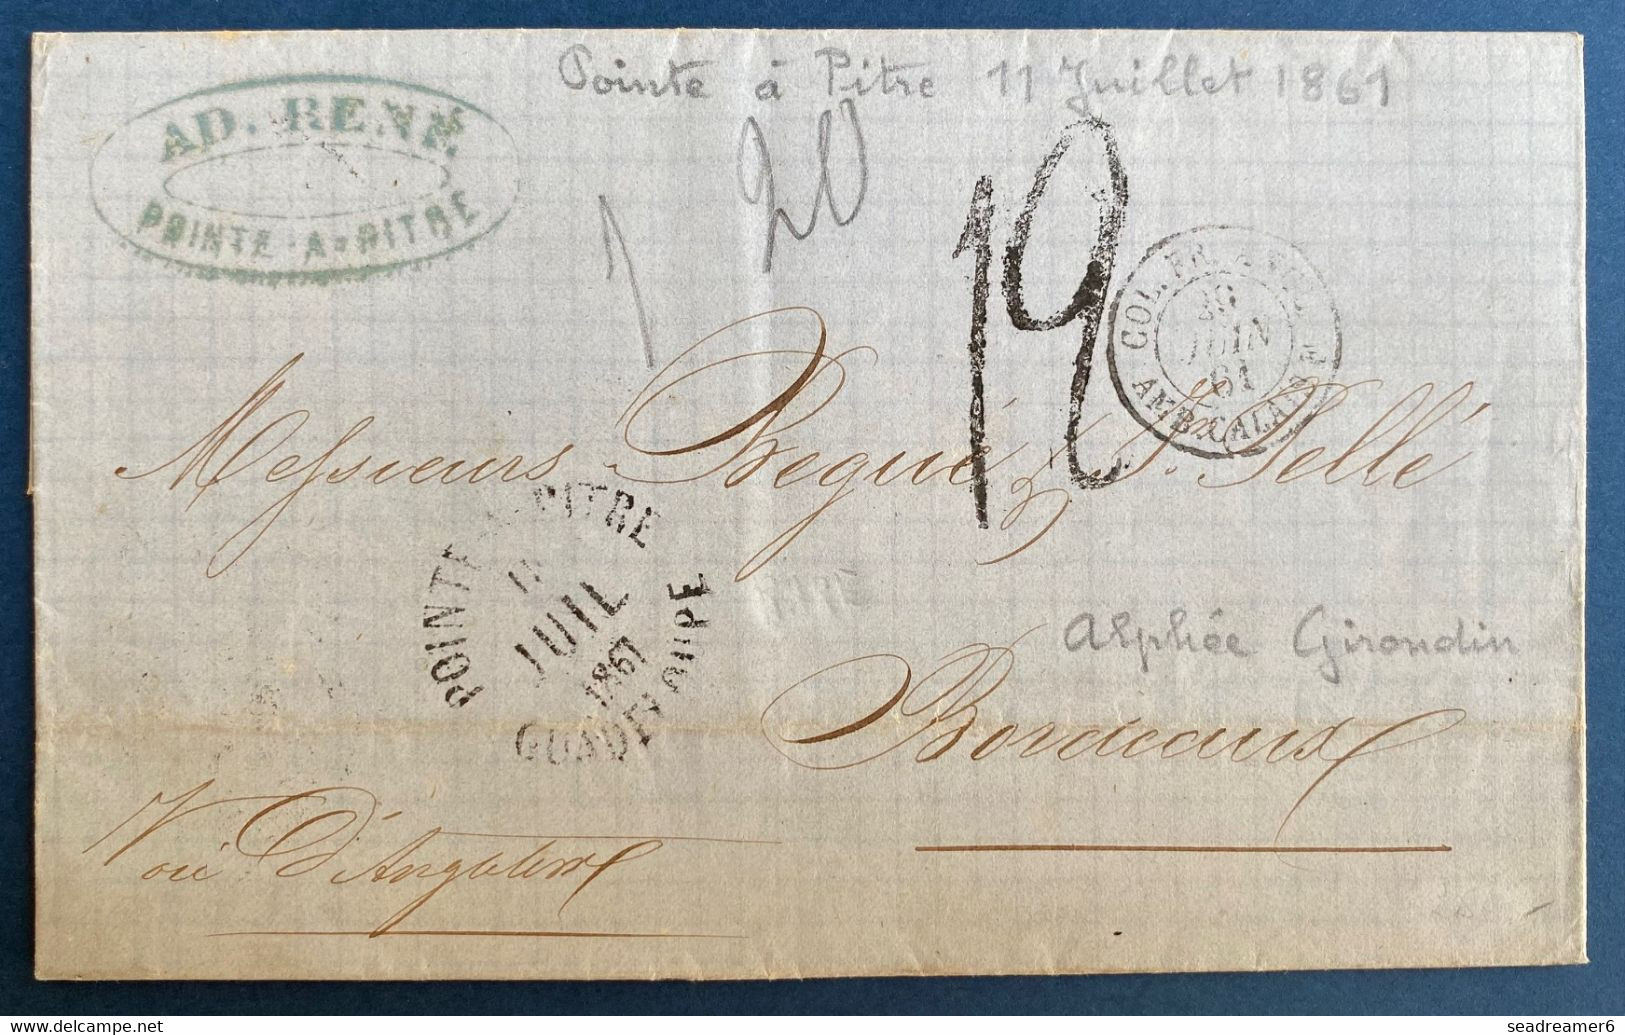 Pointe à Pitre 11 Juillet 1861
AD. RENÉ
POINTE-A-PITRE
1 20
12
COL. FR. AV. ANGL.
JUIN
61
AMB. CALAIS
Messieurs Begué & Jx Sellé
POINTE-A-PITRE
11
JUIL
1861
GUADELOUPE
Alphée Girondin
Bordeaux
Voie d'Angleterre
www.delcampe.net
seadreamer6